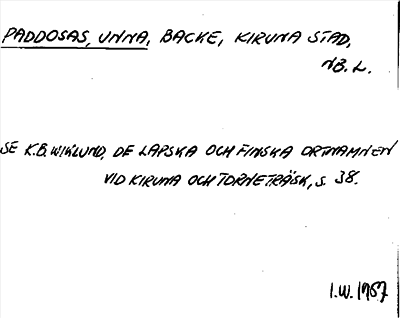 PADDOSAS, UNNA, BACKE, KIRUNA STAD,
NB. L.
SE K.B. WIKLUND, DE LAPSKA OCH FINSKA ORTNAMNEN
VID KIRUNA OCH TORNETRÄSK, S. 38.
I.W. 1987